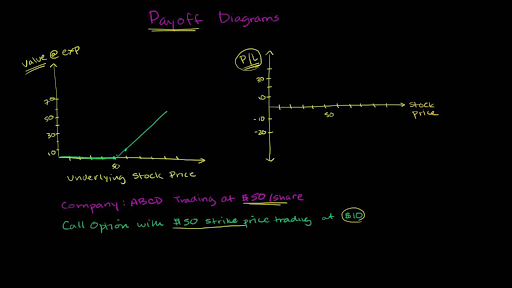 Payoff Diagrams
Value @ exp
P/L
70
50
30
10
50
Underlying Stock Price
20
10
-10
-20
50
Stock Price
Company: ABCD Trading at $50/share
Call Option with $50 strike price trading at $10